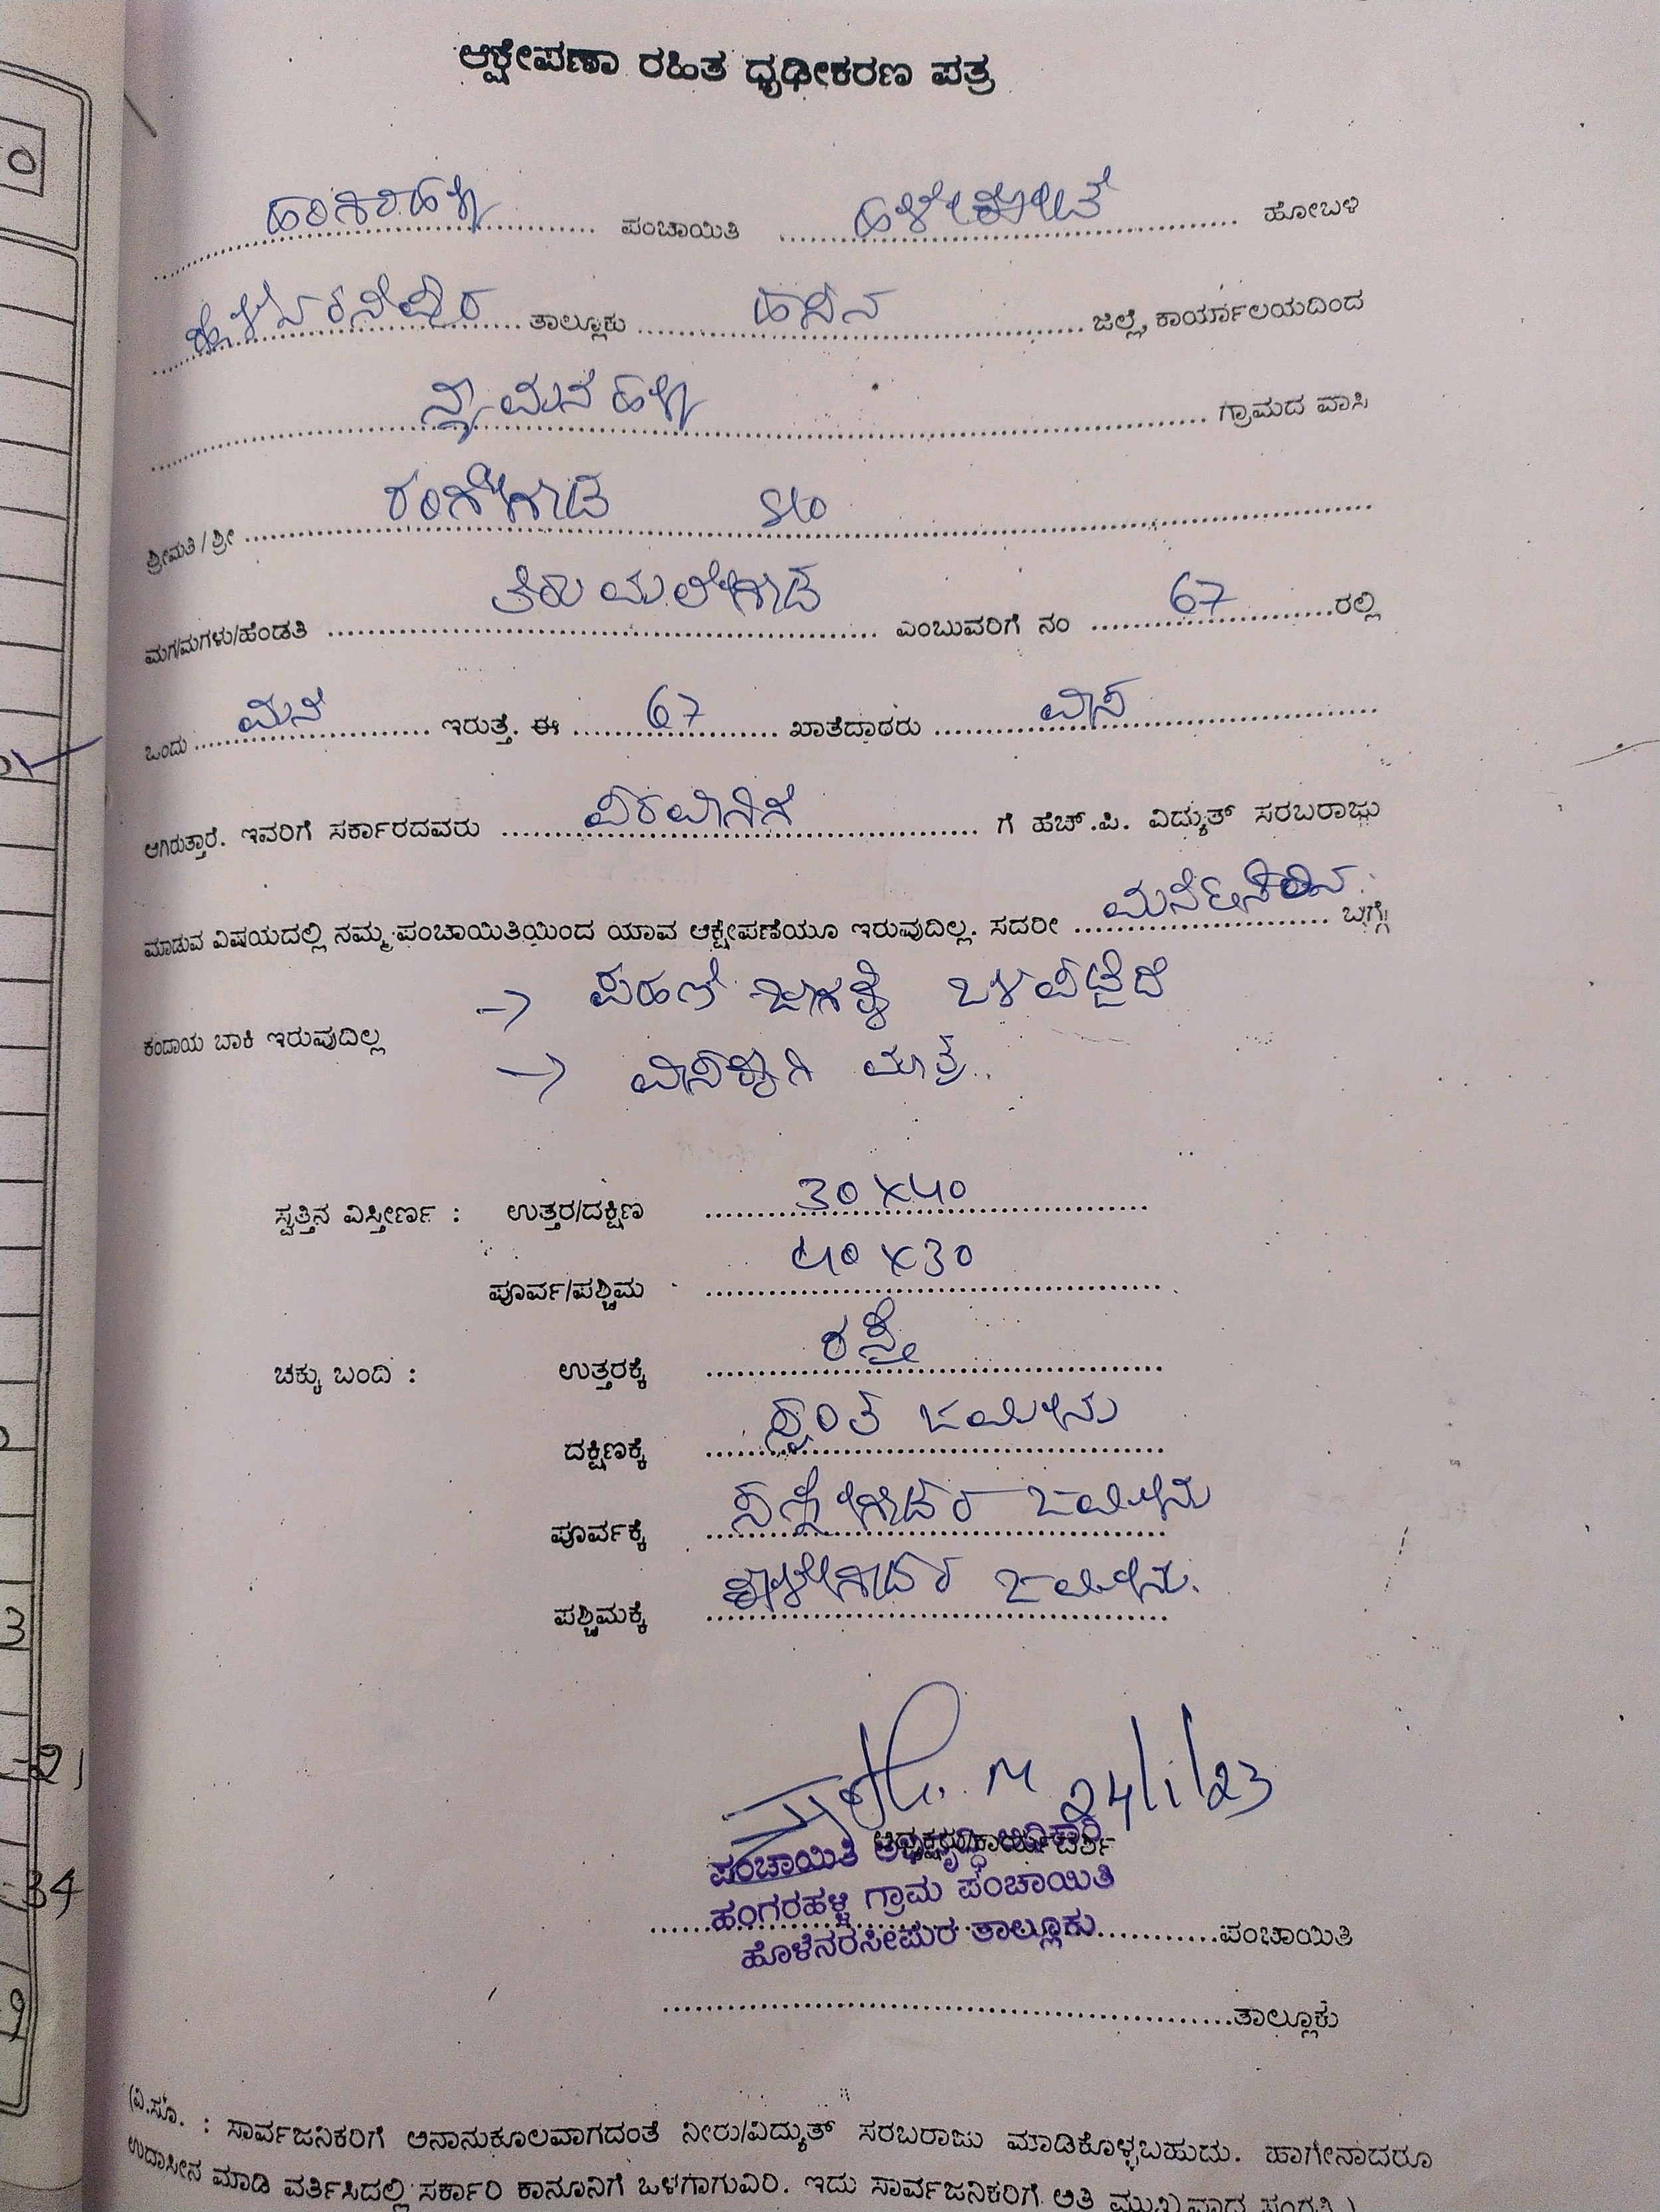 ಆಕ್ಷೇಪಣಾ ರಹಿತ ಧೃಢೀಕರಣ ಪತ್ರ
ಹಂಗರಹಳ್ಳಿ ಪಂಚಾಯಿತಿ ಹಳೇಕೋಟೆ ಹೋಬಳಿ
ಹೊಳೆನರಸೀಪುರ ತಾಲ್ಲೂಕು ಹಾಸನ ಜಿಲ್ಲೆ, ಕಾರ್ಯಾಲಯದಿಂದ
ಗ್ರಾಮದ ವಾಸಿ
ಶ್ರೀಮತಿ / ಶ್ರೀ ರಂಗೇಗೌಡ S/o
ಮಗ/ಮಗಳು/ಹೆಂಡತಿ ತಿರುಮಲೇಗೌಡ ಎಂಬುವರಿಗೆ ನಂ 67 ರಲ್ಲಿ
ಒಂದು ಮನೆ ಇರುತ್ತೆ. ಈ 67 ಖಾತೆದಾರರು ವಾಸ
ಆಗಿರುತ್ತಾರೆ. ಇವರಿಗೆ ಸರ್ಕಾರದವರು ಗೆ ಹೆಚ್.ಪಿ. ವಿದ್ಯುತ್ ಸರಬರಾಜು
ಮಾಡುವ ವಿಷಯದಲ್ಲಿ ನಮ್ಮ ಪಂಚಾಯಿತಿಯಿಂದ ಯಾವ ಆಕ್ಷೇಪಣೆಯೂ ಇರುವುದಿಲ್ಲ. ಸದರೀ ಬಗ್ಗೆ
→ ಪಹಣಿ ಜಾಗಕ್ಕೆ ಒಳಪಟ್ಟಿದೆ
ಕಂದಾಯ ಬಾಕಿ ಇರುವುದಿಲ್ಲ
→ ವಾಸಕ್ಕಾಗಿ ಮಾತ್ರ.
ಸ್ವತ್ತಿನ ವಿಸ್ತೀರ್ಣ : ಉತ್ತರ/ದಕ್ಷಿಣ 30 X 40
ಪೂರ್ವ/ಪಶ್ಚಿಮ 40 X 30
ಚಕ್ಕು ಬಂದಿ : ಉತ್ತರಕ್ಕೆ ರಸ್ತೆ
ದಕ್ಷಿಣಕ್ಕೆ ಸ್ವಂತ ಜಮೀನು
ಪೂರ್ವಕ್ಕೆ ಸಣ್ಣೇಗೌಡರ ಜಮೀನು
ಪಶ್ಚಿಮಕ್ಕೆ ಕಾಳೇಗೌಡರ ಜಮೀನು.
24/1/23
ಅಧ್ಯಕ್ಷರು/ಕಾರ್ಯದರ್ಶಿ
ಪಂಚಾಯಿತಿ ಅಭಿವೃದ್ಧಿ ಅಧಿಕಾರಿ
ಹಂಗರಹಳ್ಳಿ ಗ್ರಾಮ ಪಂಚಾಯಿತಿ
ಹೊಳೆನರಸೀಪುರ ತಾಲ್ಲೂಕು ಪಂಚಾಯಿತಿ
ತಾಲ್ಲೂಕು
(ವಿ.ಸೂ. : ಸಾರ್ವಜನಿಕರಿಗೆ ಅನಾನುಕೂಲವಾಗದಂತೆ ನೀರು/ವಿದ್ಯುತ್ ಸರಬರಾಜು ಮಾಡಿಕೊಳ್ಳಬಹುದು. ಹಾಗೇನಾದರೂ
ಉದಾಸೀನ ಮಾಡಿ ವರ್ತಿಸಿದಲ್ಲಿ ಸರ್ಕಾರಿ ಕಾನೂನಿಗೆ ಒಳಗಾಗುವಿರಿ. ಇದು ಸಾರ್ವಜನಿಕರಿಗೆ ಅತಿ ಮುಖ್ಯವಾದ ಸಂಗತಿ.)